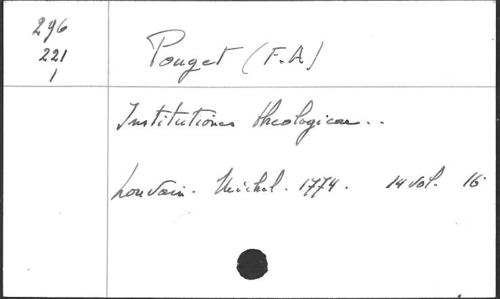 296
221
1
Pouget (F.A)
Institutiones theologicae..
Louvain. Michel. 1774. 14 vol. 16°